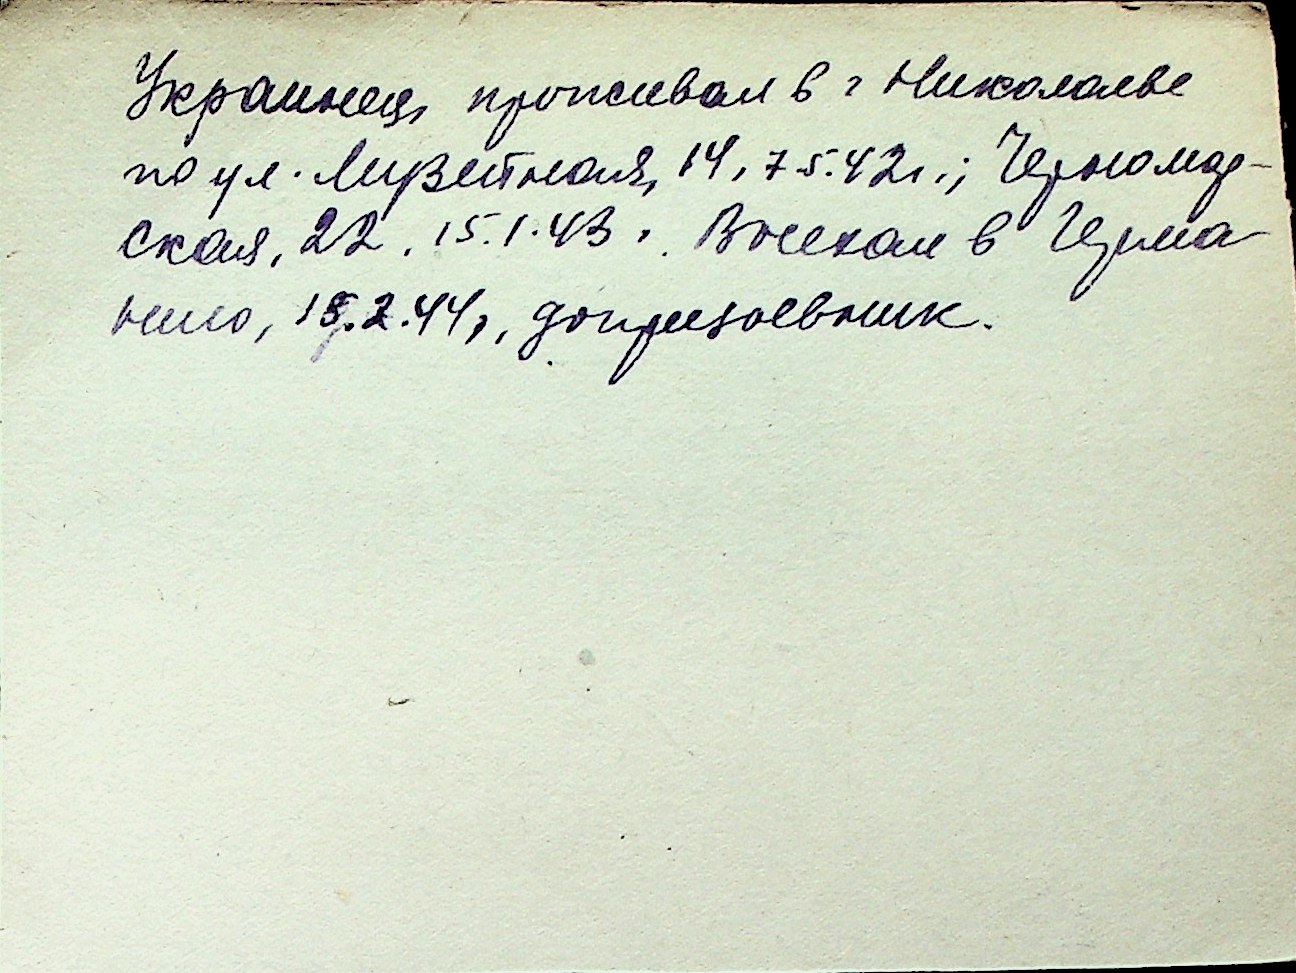 Украинец, проживал в г Николаеве
по ул. Музейная, 14, 7.5.42г.; Черномор-
ская, 22. 15.1.43. Выехал в Герма-
нию, .2.44, допризовник.